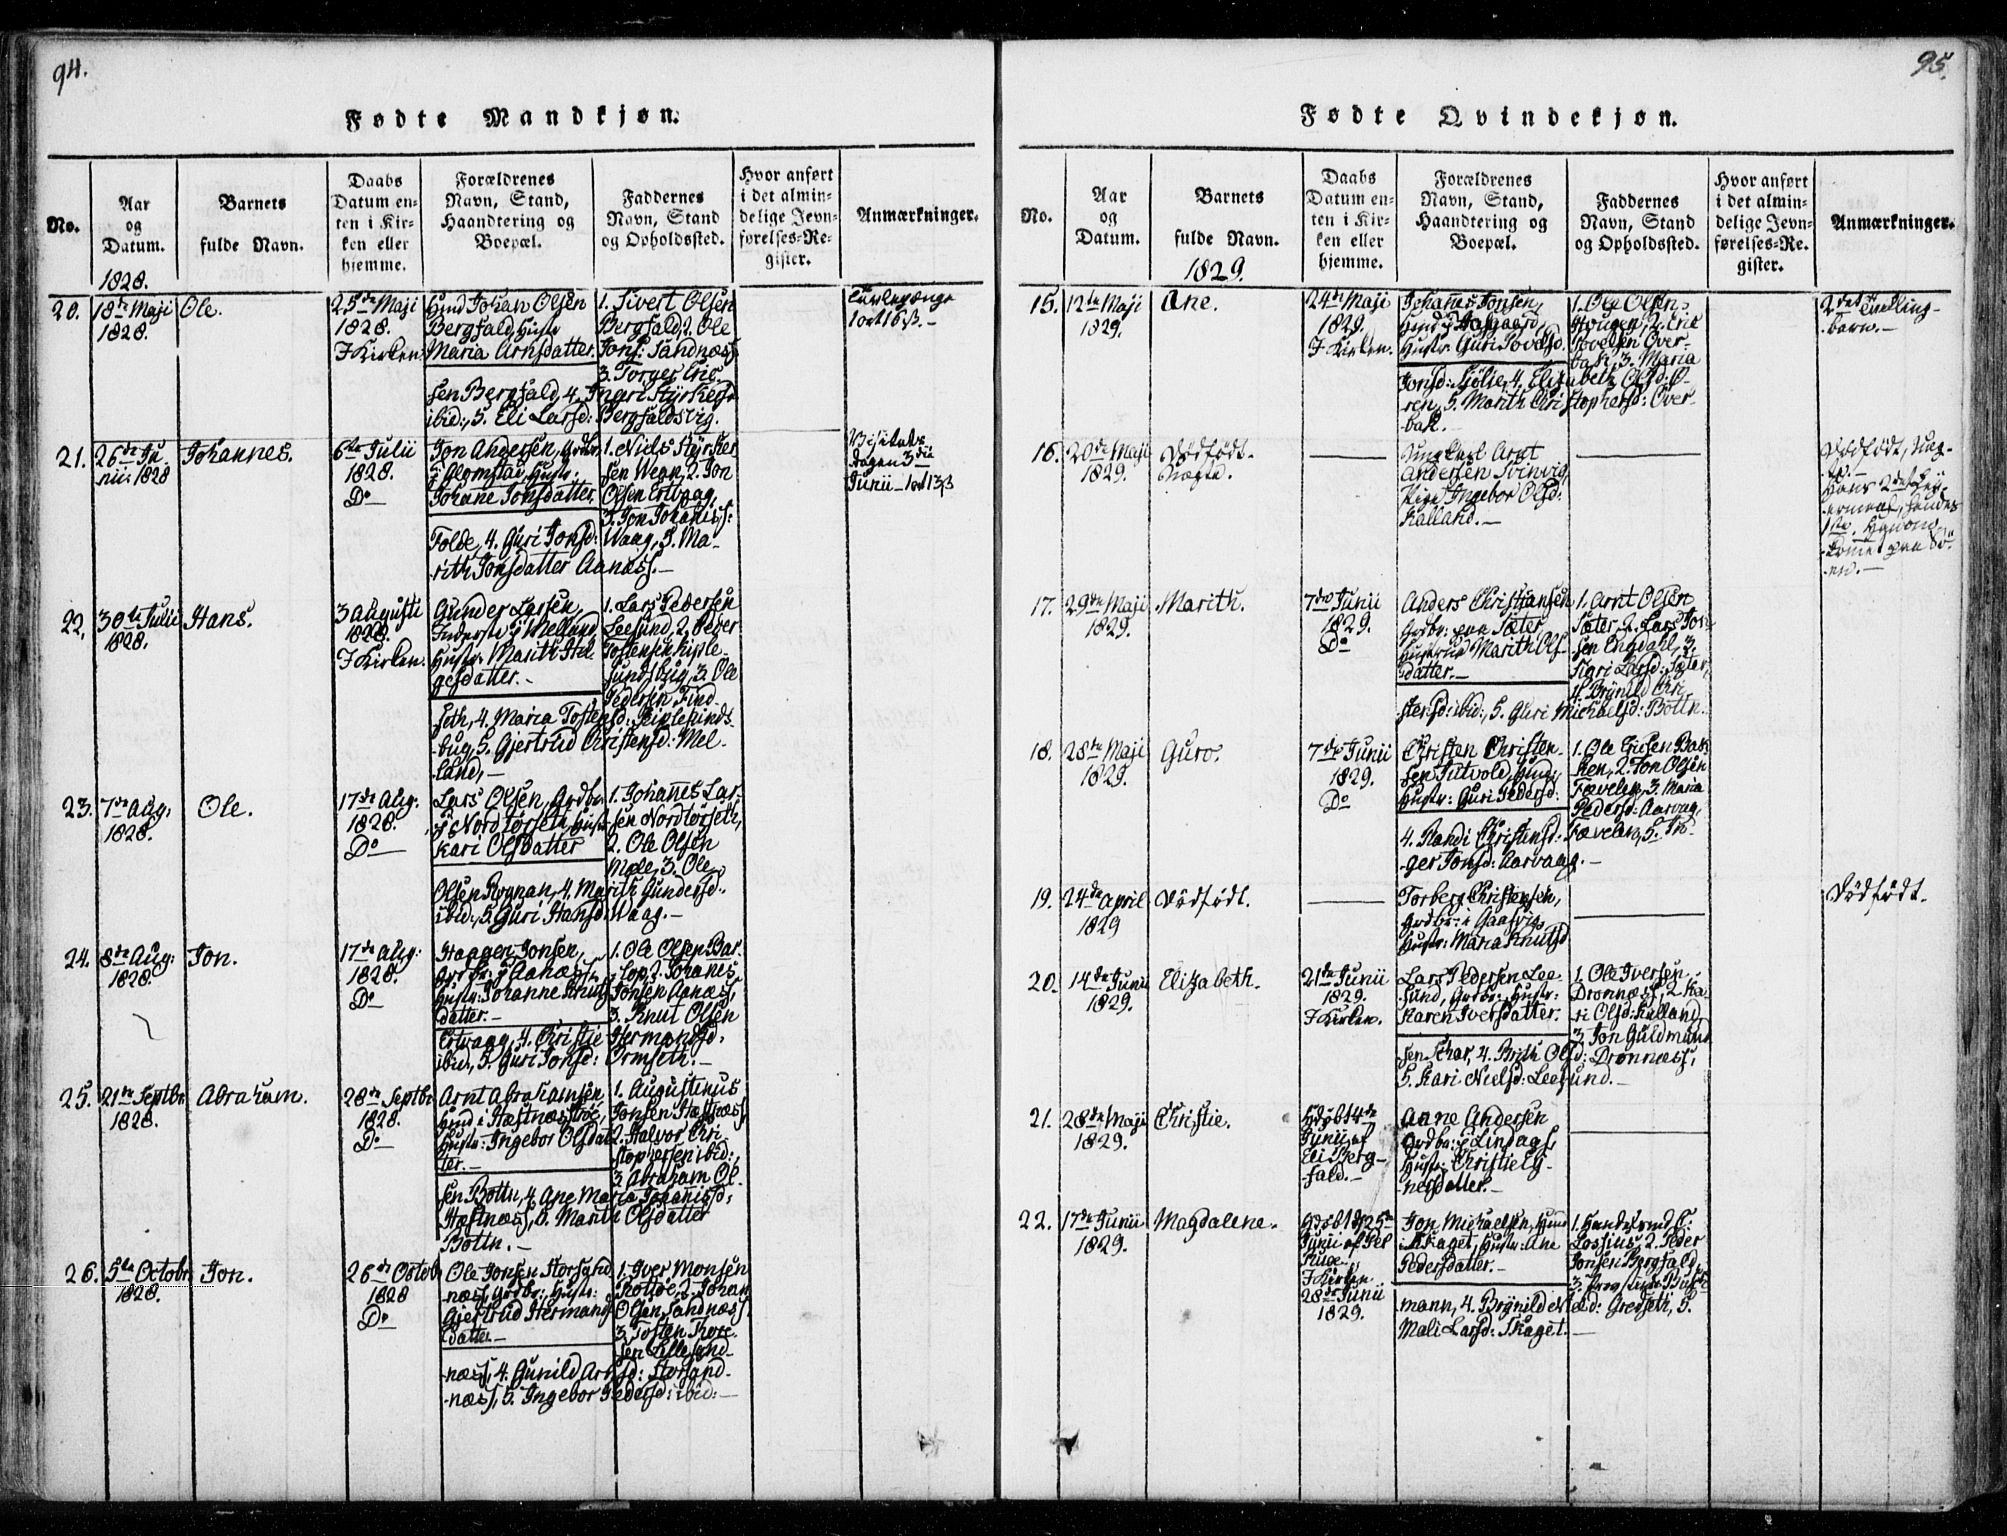 94.
Fødte Mandkjøn.
No.
Aar
og
Datum.
Barnets
fulde Navn.
Daabs
Datum en-
ten i Kir-
ken eller
hjemme.
Forældrenes
Navn, Stand,
Haandtering og
Boepæl.
Faddernes
Navn, Stand
og Opholdssted.
Hvor anført
i det almin-
delige Jevn-
førelses-Re-
gister.
Anmærkninger.
1828.
20.
18de Maji
1828.
Ole.
25de Maji
1828.
I Kirken.
Huusmd Johan Olsen
Bergfald, Hustr
Maria Arnsdatter.
1. Sivert Olsen
Bergfald, 2. Ole
Jons: Sandnæss,
3. Torger Eric
sen Bergfald, 4. Ingeri Styrkersd
ibid:, 5. Eli Larsd: Bergfaldsvig.
1 ort 16 ß.
21.
26de Ju-
nii: 1828
Johannes.
6te Julii
1828.
Do
Jon Andersen, Grdbr.
i Glomstad, Hustr.
Johane Jonsdatter.
1. Niels Styrker
sen Wegn, 2. Jon
Olsen Ertvaag,
3. Jon Johaniss:
Folde, 4. Guri Jonsd: Waag, 5. Ma-
rith Jonsdatter Aanæss.
Visitats
dagen 3die
Junii - 1 ort 13 ß
22.
30te Julii
1828.
Hans.
3 Augusti
1828.
I Kirken.
Gunder Larsen,
Inderste i Melland,
Hustr. Marith Hel
gesdatter.
1. Lars Pedersen
Leesund, 2. Peder
Tostensen Reiple-
sundsbug, 3. Ole
Pedersen Find-
seth, 4. Maria Tostensd: Reiplesunds-
bug, 5. Gjertrud Christensd: Mel-
land.
23.
7de Aug.
1828.
Ole.
17de Aug:
1828.
Do
Lars Olsen, Grdbr.
i Nordtørseth, Hustr.
Kari Olsdatter
1. Johannes Lar-
sen Nordtørseth,
2. Ole Olsen
Mole, 3. Ole
Olsen Rognan, 4. Marith Gundersd:
ibid:, 5. Guri Hansd: Waag.
24.
8de Aug:
1828.
Jon.
17de Aug:
1828.
Do
Haagen Jonsen,
Grdbr. i Aanæss,
Hustr: Johanne Knuts
datter.
1. Ole Olsen Bar-
lop, 2. Johanes
Jonsen Aanæss,
3. Knut Olsen
Ertvaag, 4. Christie Hermansd:
ibid:, 5. Guri Jonsd: Ormseth.
25.
21de Septbr
1828.
Abraham.
28de Septbr
1828.
Do
Arnt Abrahamsen,
Huusmd i Hestnæssøe,
Hustr: Ingebor Olsdat
ter.
1. Augustinus
Jonsen Hestnæss,
2. Halvor Chri
stophersen ibid:,
3. Abraham Ol-
sen Bottn, 4. Ane Maria Johanisd:
Hestnæss, 5. Marith Olsdatter
Bottn.
26.
5te Octobr.
1828.
Jon.
26de Octob
1828
Do
Ole Jonsen Storsand
næss, Grdbr:, Hustr:
Gjertrud Hermands
datter.
1. Iver Monsen
Rottøe, 2. Johan
Olsen Sandnæss,
3. Tosten Tore-
sen Lillesand-
næss, 4. Gunild Arnsd: Storsand-
næss, 5. Ingebor Pedersd: ibid:
95.
Fødte Qvindekjøn.
No.
Aar
og
Datum.
Barnets
fulde Navn.
Daabs
Datum en-
ten i Kir-
ken eller
hjemme.
Forældrenes
Navn, Stand,
Haandtering og
Boepæl.
Faddernes
Navn, Stand
og Opholdssted.
Hvor anført
i det almin-
delige Jevn-
førelses-Re-
gister.
Anmærkninger.
1829.
15.
12te Maji
1829.
Ane.
24de Maji
1829.
I Kirken.
Johannes Jonsen,
Hustr. Guri Povelsd.
1. Ole Olsen
Hougen, 2. Eric
Povelsen Over-
bak, 3. Maria
Jonsd: Sjølie, 4. Elizabeth Olsd: Ø-
ren, 5. Marith Christophersd: Over-
bak.
2det Tvilling-
barn.
16.
20de Maji
1829.
Dødfødt.
Uægte.
Ungkarl Arnt
Andersen Svinvig,
Pige Ingebor Olsd:
Kalland.
Dødfødt, Uæg-
te.
Hans 2det Ley-
ermaal, hendes
1ste.
17.
29de Maji
1829.
Marith.
7de Junii
1829.
Do
Anders Christiansen
Grdbr. paa Sæter
Hustrue Marith Ols-
datter.
1. Arnt Olsen
Sæter, 2. Lars Jon-
sen Engdahl, 3.
Siri Larsd: Sæter,
4. Brynild Chri
stensd: ibid:, 5. Guri Michelsd: Bottn.
18.
28de Maji
1829.
Guro.
7de Junii
1829.
Do
Christen Christen-
sen Sitvold, Huusmd,
Hustr: Guri Pedersd:
1. Ole Eriksen Bak
ken, 2. Jon Olsen
Fævelen, 3. Maria
Pedersd: Aarvag,
4. Randi Christensd: Fævelen, 5. In-
ger Jonsd: Aarvaag.
19.
24de April
1829
Dødfødt.
Torberg Christensen,
Grdbr: i Gaasvig,
Hustr: Maria Knutsd
Dødfødt.
20.
14de Junii
1829.
Elizabeth.
21de Junii
1829.
I Kirken.
Lars Pedersen Lee-
sund, Grdbr:, Hustr:
Karen Iversdatter.
1. Ole Iversen
Dromnæss, 2. Ka-
ri Olsd: Kalland,
3. Jon Guldmund
sen Skar, 4. Brith Olsd: Dromnæss,
5. Kari Nielsd: Leesund.
21.
28de Maji
1829.
Christie.
Hdøbt 4de
Junii af
Eli Berg-
fald.
Aane Andersen
Grdbr: i Lindaas,
Hustr: Christie Eg-
nesdatter.
22.
17de Junii
1829.
Magdalene.
Hdøbt d 25de
Junii af Pel
I Kirken
28de Junii
1829.
Jon Michaelsen, Huusmd
i Skaget, Hustr: Ane
Pedersdatter.
1. Handelsmd T:
Lossius, 2. Peder
Jonsen Bergfald,
mann, 4. Brynild Nielsd: Grevseth, 5.
Mali Larsd: Skaget.